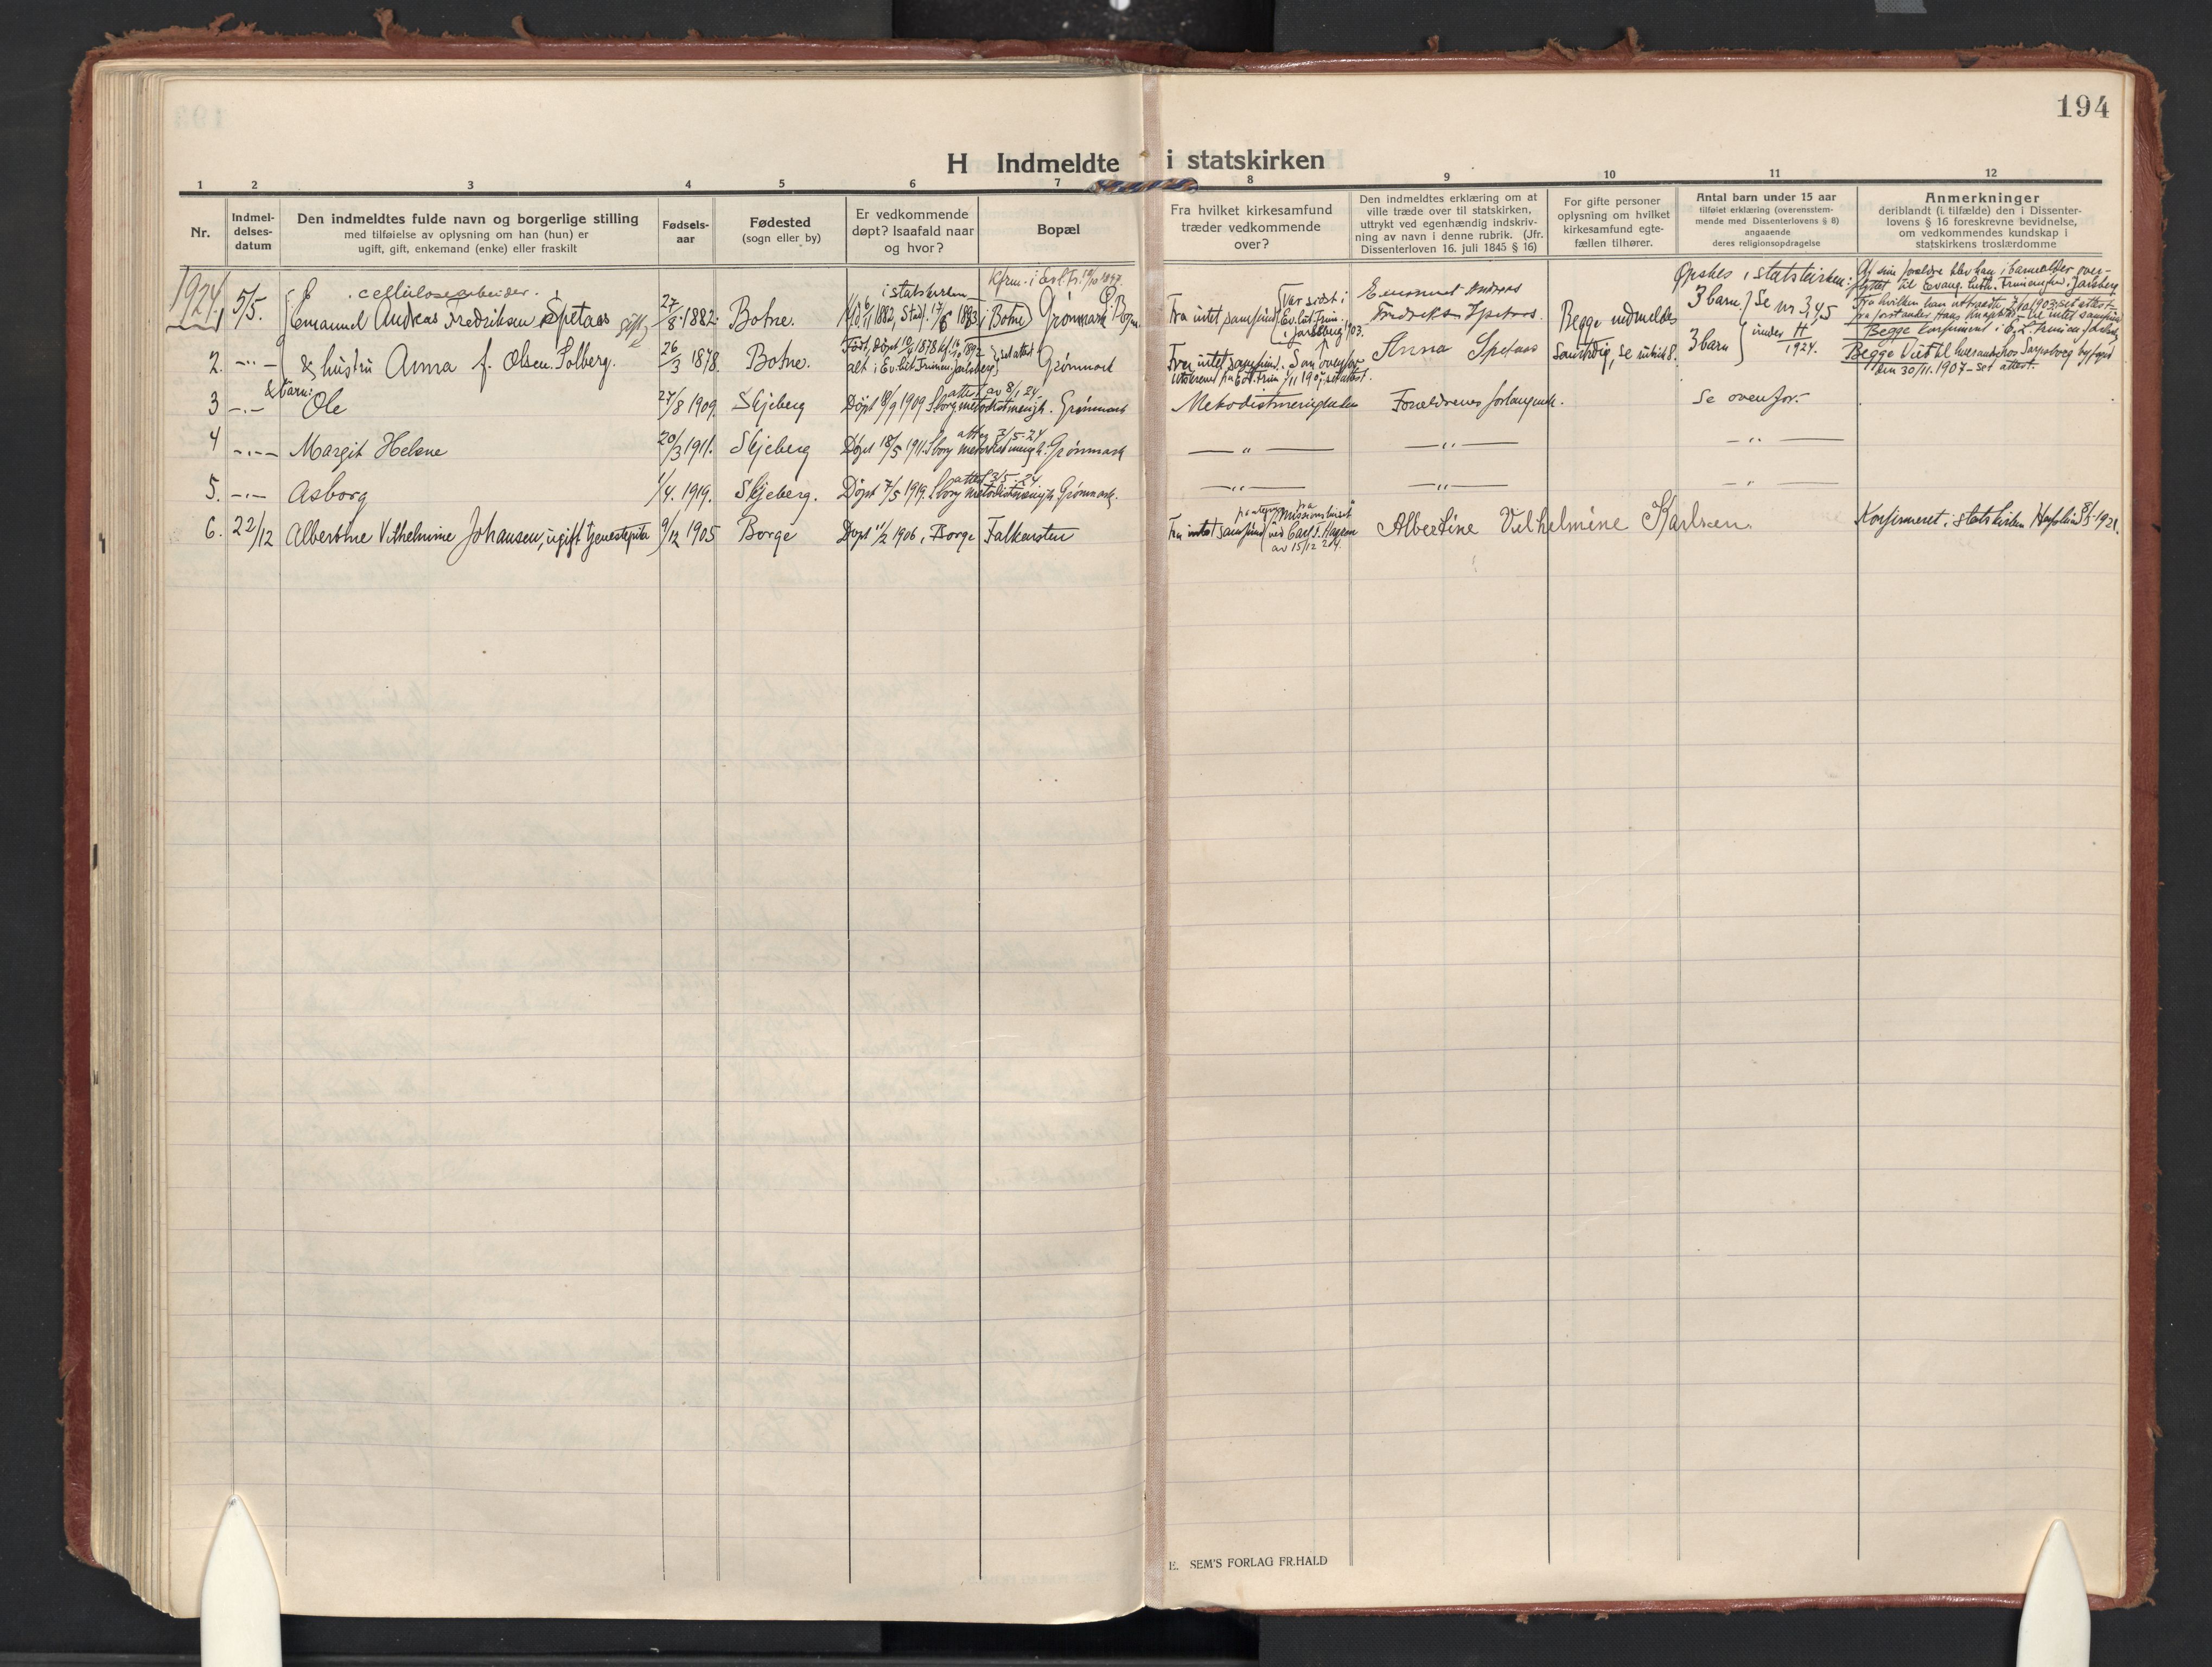 194
H Indmeldte i statskirken
1 2 3 4 5 6 7 8 9 10 11 12
Nr.
Indmel-
delses-
datum
Den indmeldtes fulde navn og borgerlige stilling
med tilføielse av oplysning om han (hun) er
ugift, gift, enkemand (enke) eller fraskilt
Fødsels-
aar
Fødested
(sogn eller by)
Er vedkommende
døpt? Isaafald naar
og hvor?
Bopæl
Fra hvilket kirkesamfund
træder vedkommende
over?
Den indmeldtes erklæring om at
ville træde over til statskirken,
uttrykt ved egenhændig indskriv-
ning av navn i denne rubrik. (Jfr.
Dissenterloven 16. juli 1845 § 16)
For gifte personer
oplysning om hvilket
kirkesamfund egte-
fællen tilhører.
Antal barn under 15 aar
tilføiet erklæring (overensstem-
mende med Dissenterlovens § 8)
angaaende
deres religionsopdragelse
Anmerkninger
deriblandt (i tilfælde) den i Dissenter-
lovens § 16 foreskrevne bevidnelse,
om vedkommendes kundskap i
statskirkens troslærdomme
1924
5/5. cellulosearbeider
Emanuel Andreas Fredriksen Spetaas gift
27/8 1882. Botne.
i statskirken
1882, Stadf. 17/6 1883 i Botne
Grønmark
Fra intet samfund
Var sidst i
Ev. lut. Frim.
i Jarlsberg 1903.
Emanuel Andreas
Fredriksen Spetaas.
Begge indmeldes
samtidig, se rubik 8.
Ønskes i statskirken:
3 barn Se nr 3,4,5
3 barn under H 1924.
Af sine forældre blev han i barnealder over-
flyttet til Evang. luth. Frimenigh. i Jarlsberg
fra hvilken han uttraadte 1903
2. -"- & hustru Anna f. Olsen Solberg. 26/3 1878. Botne.
Født, døpt 1878
alt i Ev. lut. Frimen. Jarlsberg
set attest
Grønmark
Fra intet samfund. Som ovenfor
Anna Spetaas
Begge konfirmert i
Begge Viet til hverandre hos Sarpsborg byfoged
den 30/11. 1907 – set attest.
& barn:
3 -"- Ole 27/8 1909. Skjeberg Døpt 1909 Sborg metodistmenigh. Grønmark
attest av 8/1 24
Metodistmenigheten Forældrenes forlangende. Se ovenfor.-
4 -"- Margit Helene 20/3 1911. Skjeberg Døpt 18/5 1911. Sborg metodistmenigh. Grønmark
attest 7/5-24
-"- -"- -"-
5. -"- Asborg 1/4. 1919. Skjeberg. Døpt 7/5 1919. Sborg metodistmenigh. Grønmark.
-"- -"- -"-
6. 22/12 Albertine Vilhelmine Johansen, ugift tjenestepike 9/12 1905 Borge Døpt 11/2 1906, i Borge Falkensten
Fra intet samfund
ved Carl F. Hagen
av 15/12 24.
Albertine Vilhelmine Karlsen
Konfirmeret i statskirken
E. SEM'S FORLAG FR.HALD